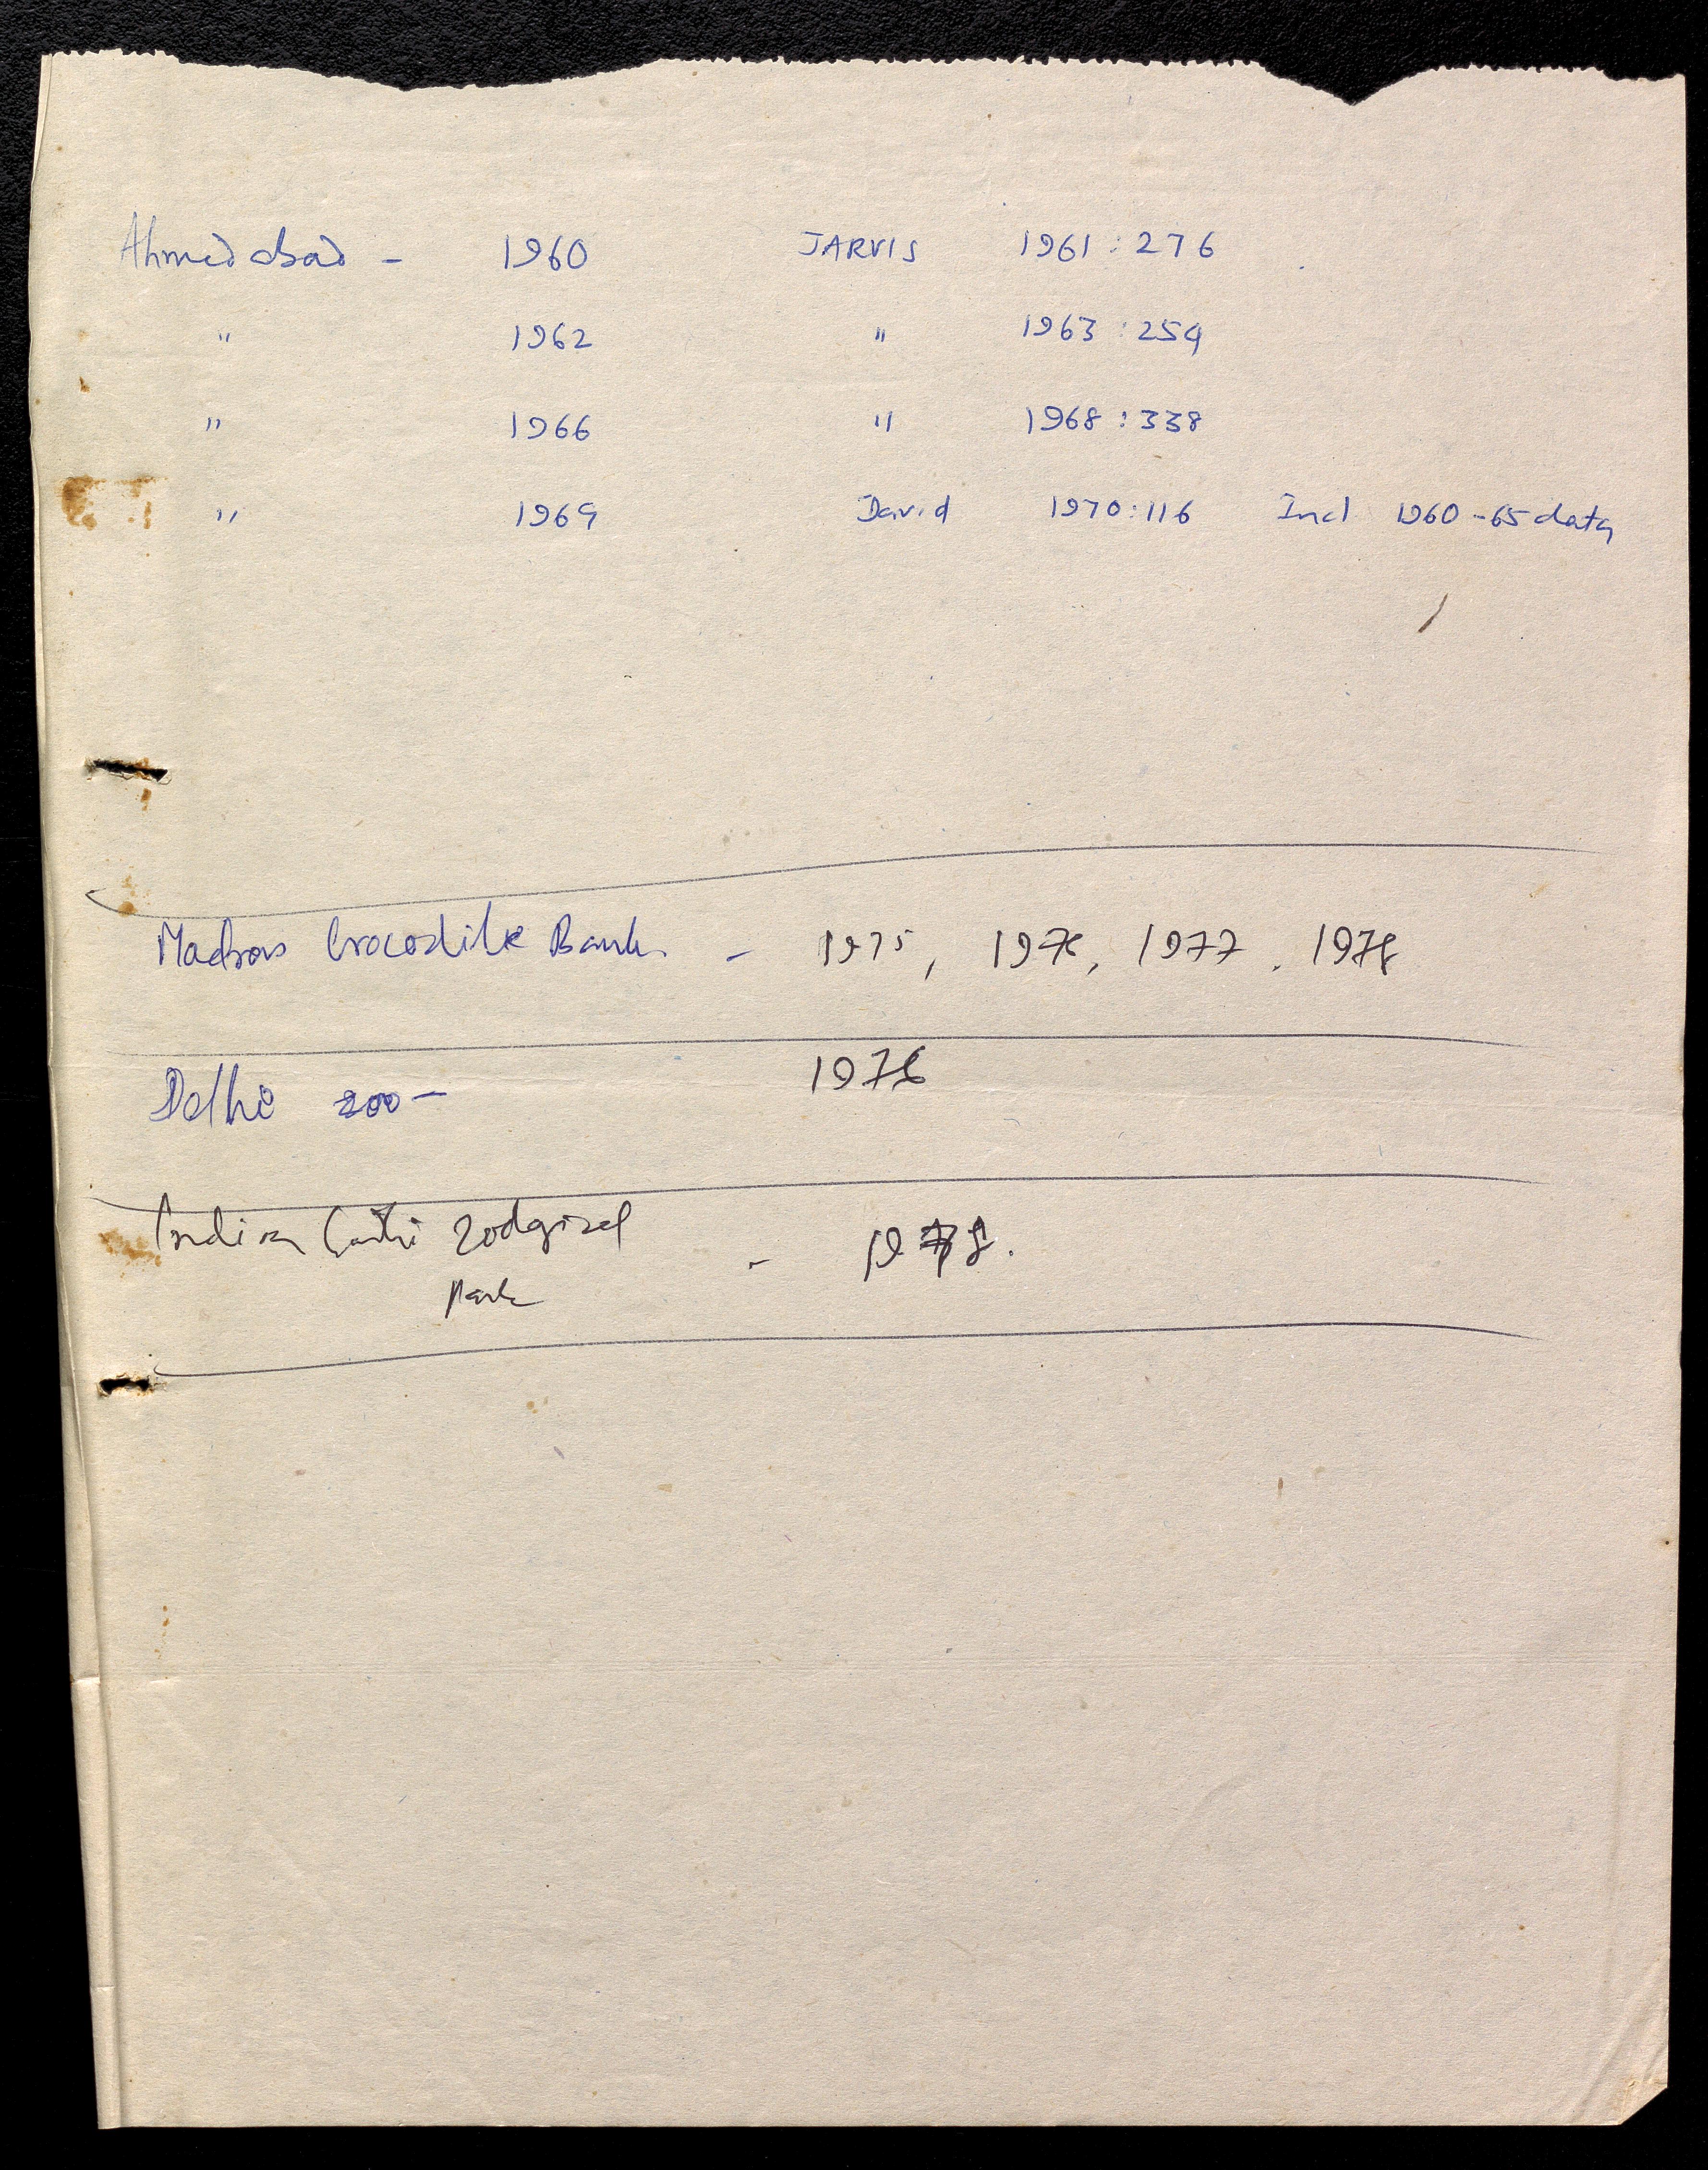 Ahmedabad - 1960 JARVIS 1961 : 276
" 1962 " 1963 : 254
" 1966 " 1968 : 338
" 1969 David 1970 : 116 Incl 1960-65 data
Madras Crocodile Bank - 1975, 1976, 1977, 1978
1976
Delhi zoo -
Indira Gandhi Zoological - 1978.
Park